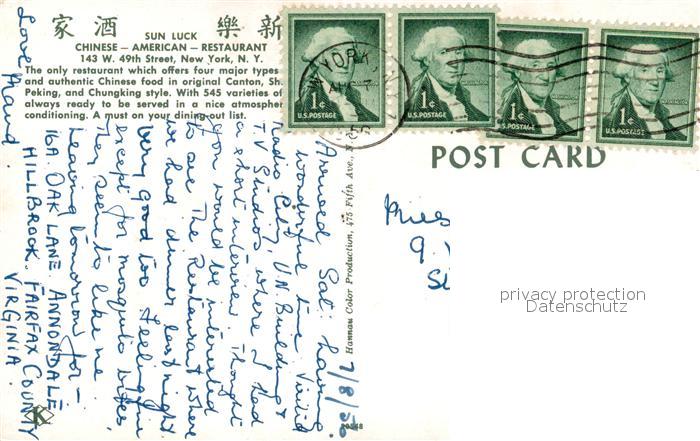 家 酒 樂 新
SUN LUCK
CHINESE — AMERICAN — RESTAURANT
143 W. 49th Street, New York, N. Y.
The only restaurant which offers four major types
and authentic Chinese food in original Canton, Sh
Peking, and Chungking style. With 545 varieties of
always ready to be served in a nice atmospher
conditioning. A must on your dining-out list.
7/8/56
Arrived Sat. having
wonderful time. Visited
Radio City, U.N. Building &
T V Studios, where I had
a short interview. Thought
you would be interested
to see The Restaurant where
we had dinner last night.
Very good too. Feeling fine
except for mosquito bites,
They seem to like me.
Leaving tomorrow for —
16A OAK LANE. ANNONDALE
HILLBROOK. FAIRFAX COUNTY
VIRGINIA.
Love Maud.
K
Hannau Color Production, 475 Fifth Ave.,
POST CARD
1¢
U.S. POSTAGE
1¢
U.S. POSTAGE
1¢
U.S. POSTAGE
1¢
U.S. POSTAGE
YORK
9.
privacy protection
Datenschutz